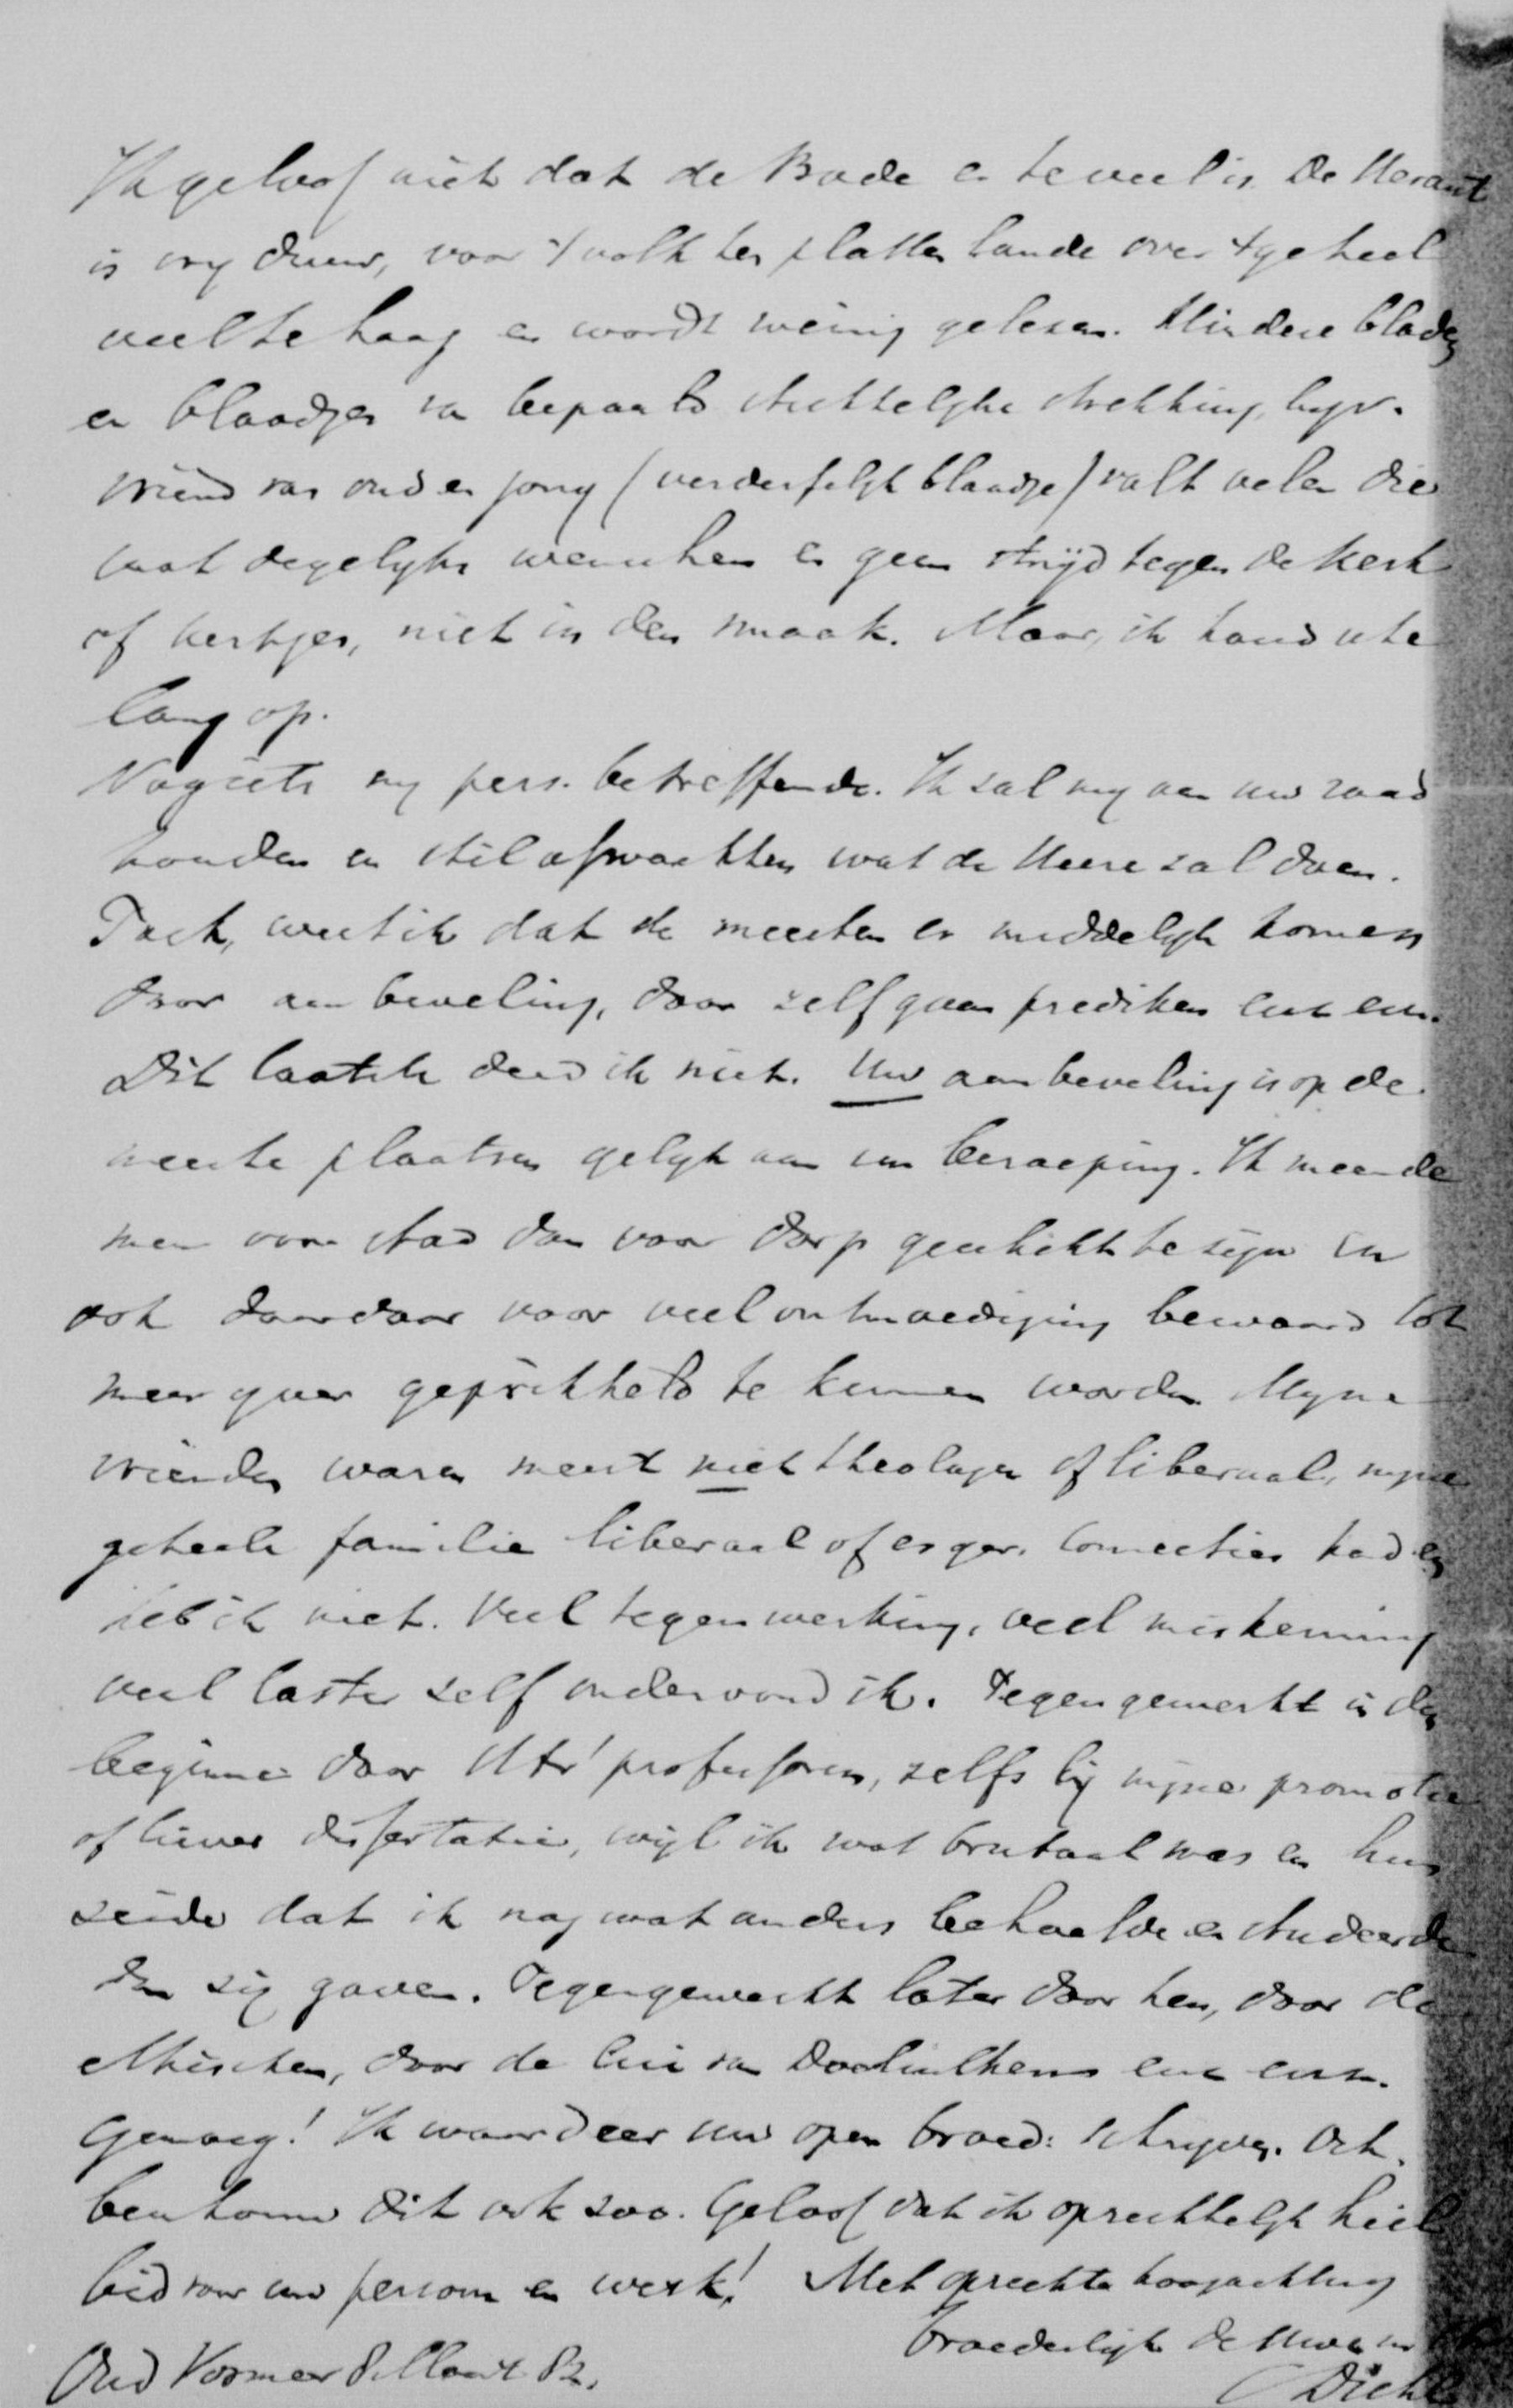 Ik geloof niet dat de Bode er te veel is. De Heraut
is vrij duur, voor 't volk ten platten lande over 't geheel
veel te hoog en wordt weinig gelezen. Mindere bladen
en blaadjes van bepaald stichtelyke strekking, byv.
vriend van oud en jong (verderfelyk blaadje) valt velen die
wat degelyks wenschen en geen stryd tegen de kerk
of kerkjes, niet in den smaak. Maar, ik houd u te
lang op.
Nog iets my pers. betreffende. Ik zal my aan uw raad
houden en stil afwachten wat de Heere zal doen.
Toch, weet ik dat de meesten er middelyk komen
door aanbeveling, door zelf gaan prediken enz enz.
Dit laatste deed ik niet. Uw aanbeveling is op de
meeste plaatsen gelyk aan een beroeping. Ik meende
meer voor stad dan voor dorp geschikt te zyn en
ook daardoor voor veel ontmoediging bewaard tot
meer yver geprikkeld te kunnen worden. Myne
vrienden waren meest niet theologen of liberaal, myne
geheele familie liberaal of erger. Connecties had en
heb ik niet. Veel tegenwerking, veel miskenning
veel laster zelf ondervond ik. Tegengewerkt in den
beginne door Utr' professoren, zelfs by myne promotie
of liever dissertatie, wyl ik wat brutaal was en hun
zeide dat ik nog wat anders behoefde en studeerde
dan zy gaven. Tegengewerkt later door hen, door de
ethischen, door de lui van Doetinchem enz enz.
Genoeg! Ik waardeer uw open broed: schryven. Och,
beschouw dit ook zoo. Geloof dat ik oprechtelyk heil
bid voor uw persoon en werk! Met oprechte hoogachting
broederlyk de Uwe in
Oud Vosmeer 8 Maart 82.